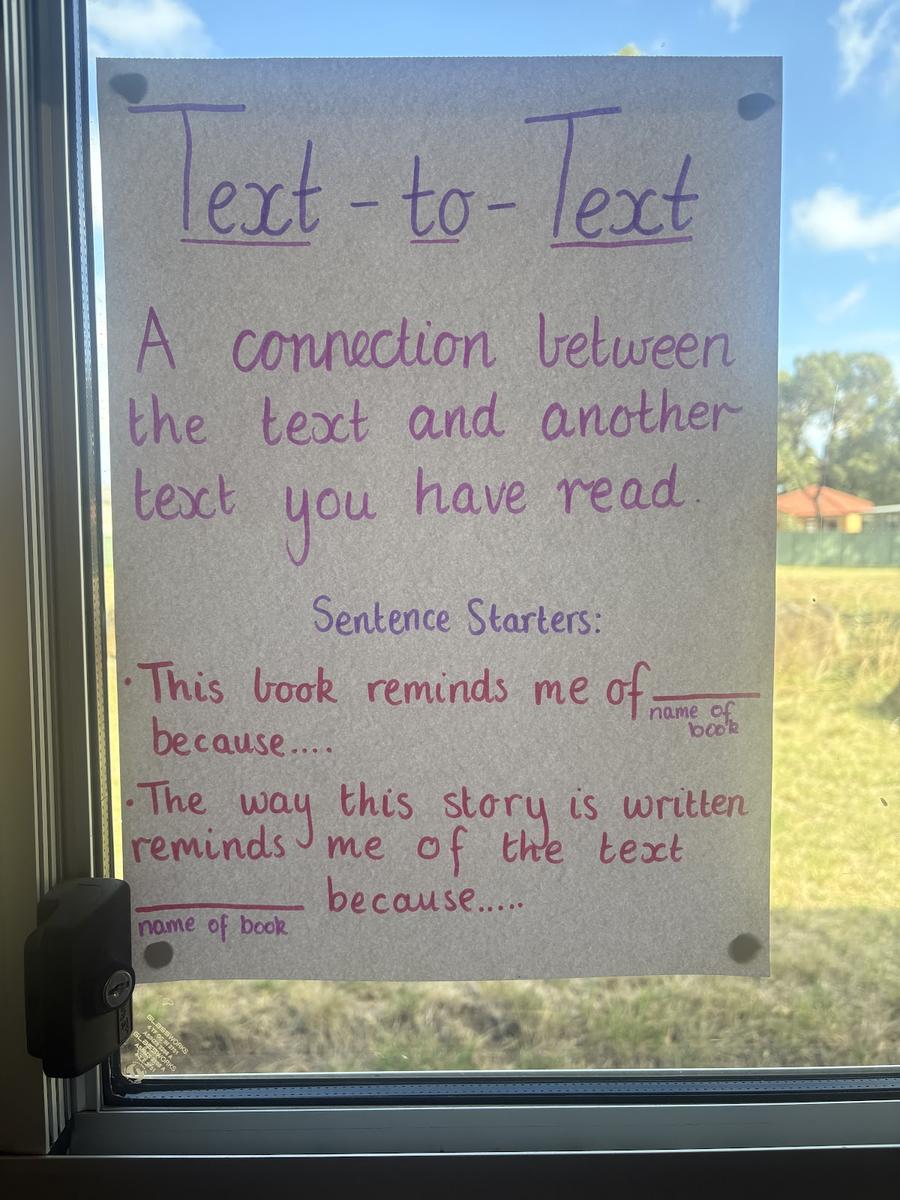 Text - to - Text
A connection between
the text and another
text you have read.
Sentence Starters:
• This book reminds me of ________
name of
book
because....
• The way this story is written
reminds me of the text
________ because.....
name of book